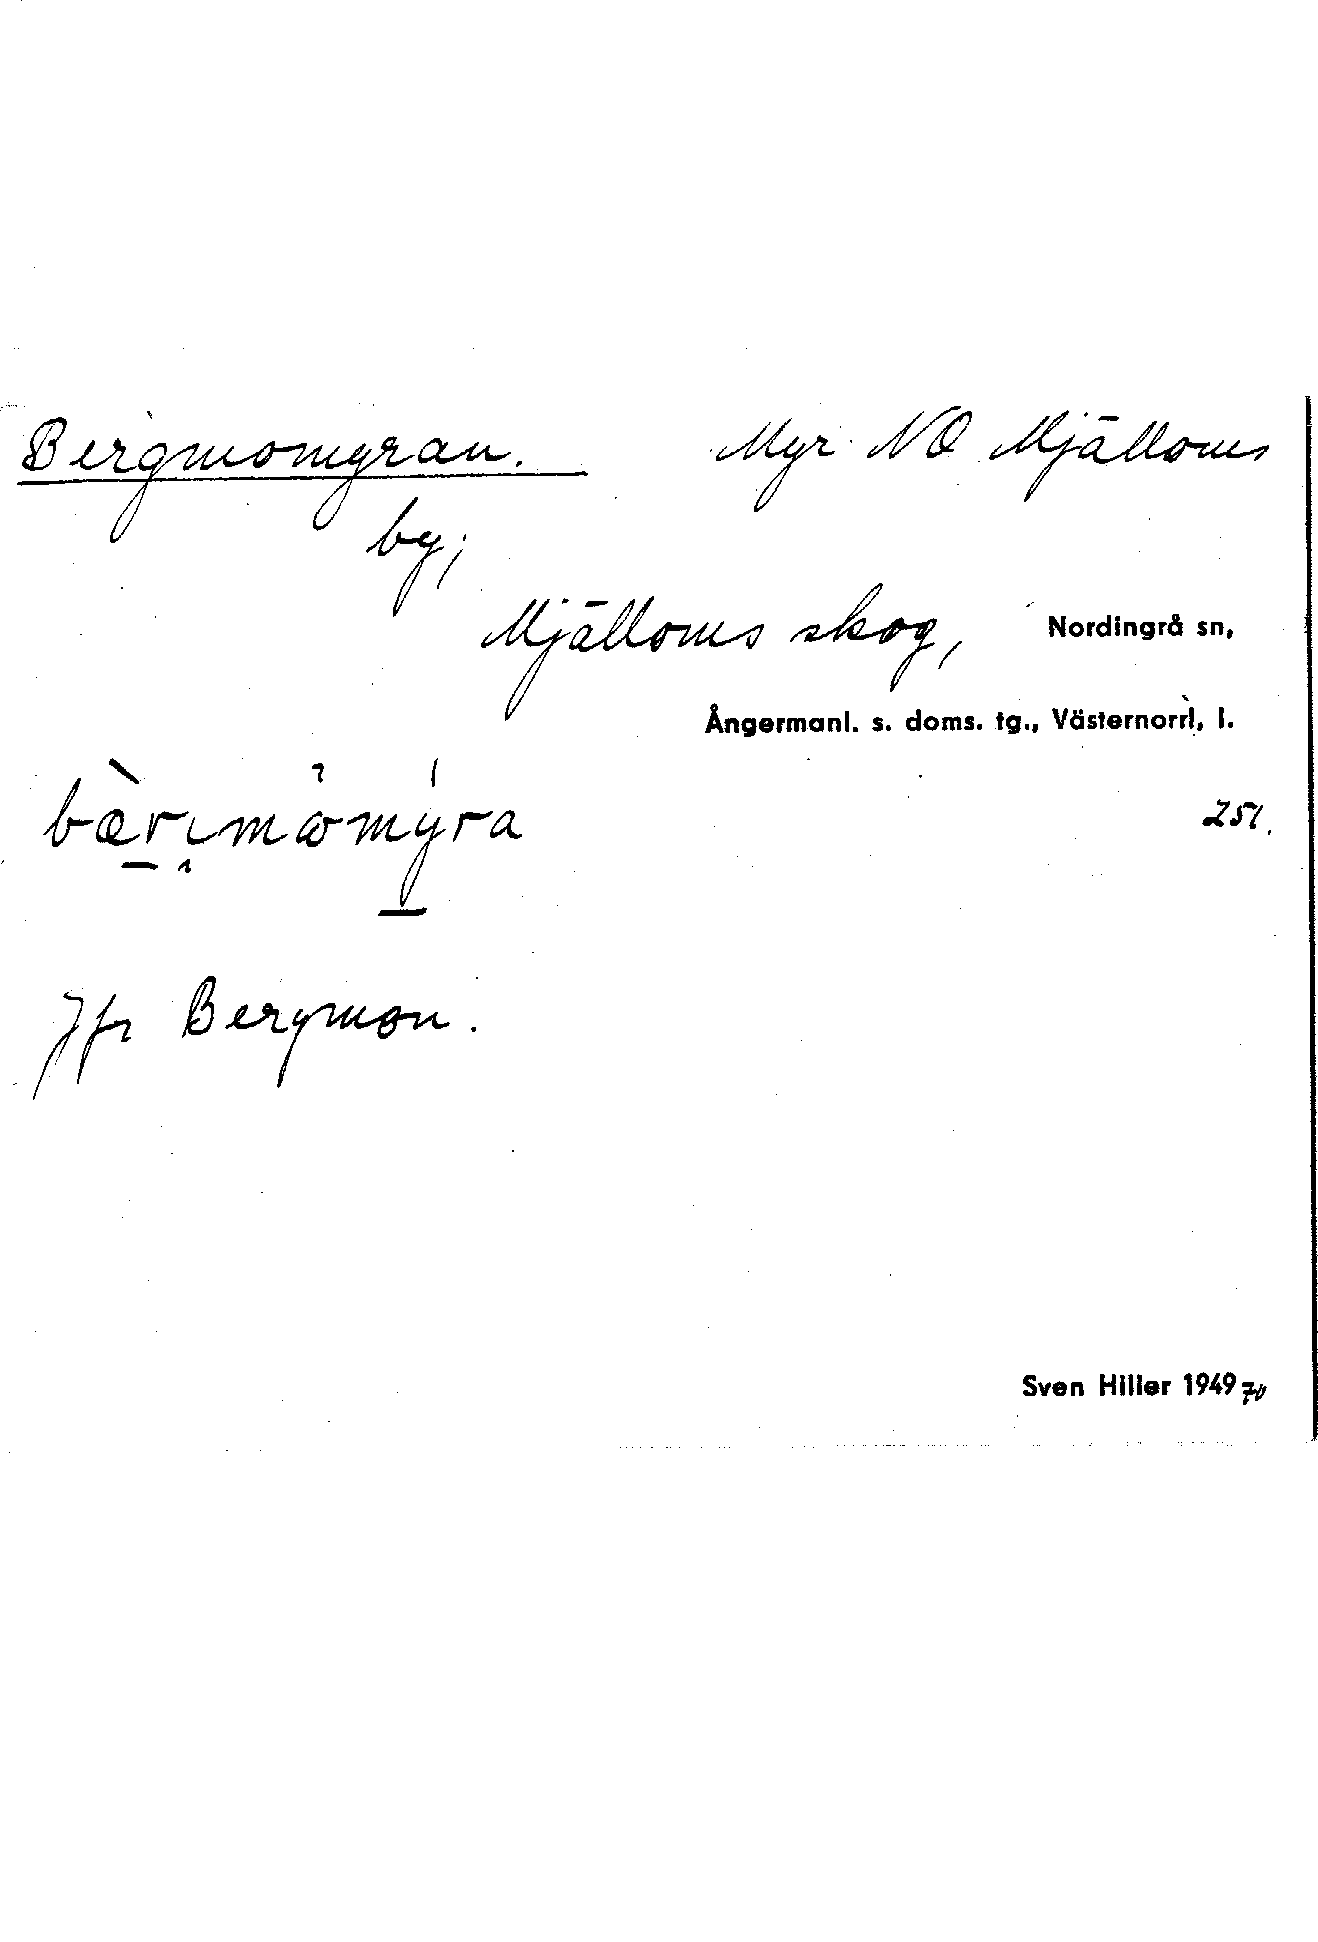 Bergmomyran. Myr NO Mjälloms
by;
Mjälloms skog, Nordingrå sn,
Ångermanl. s. doms. tg., Västernorrl. l.
251.
bærɩmömýra
Jfr Bergmon.
Sven Hiller 1949